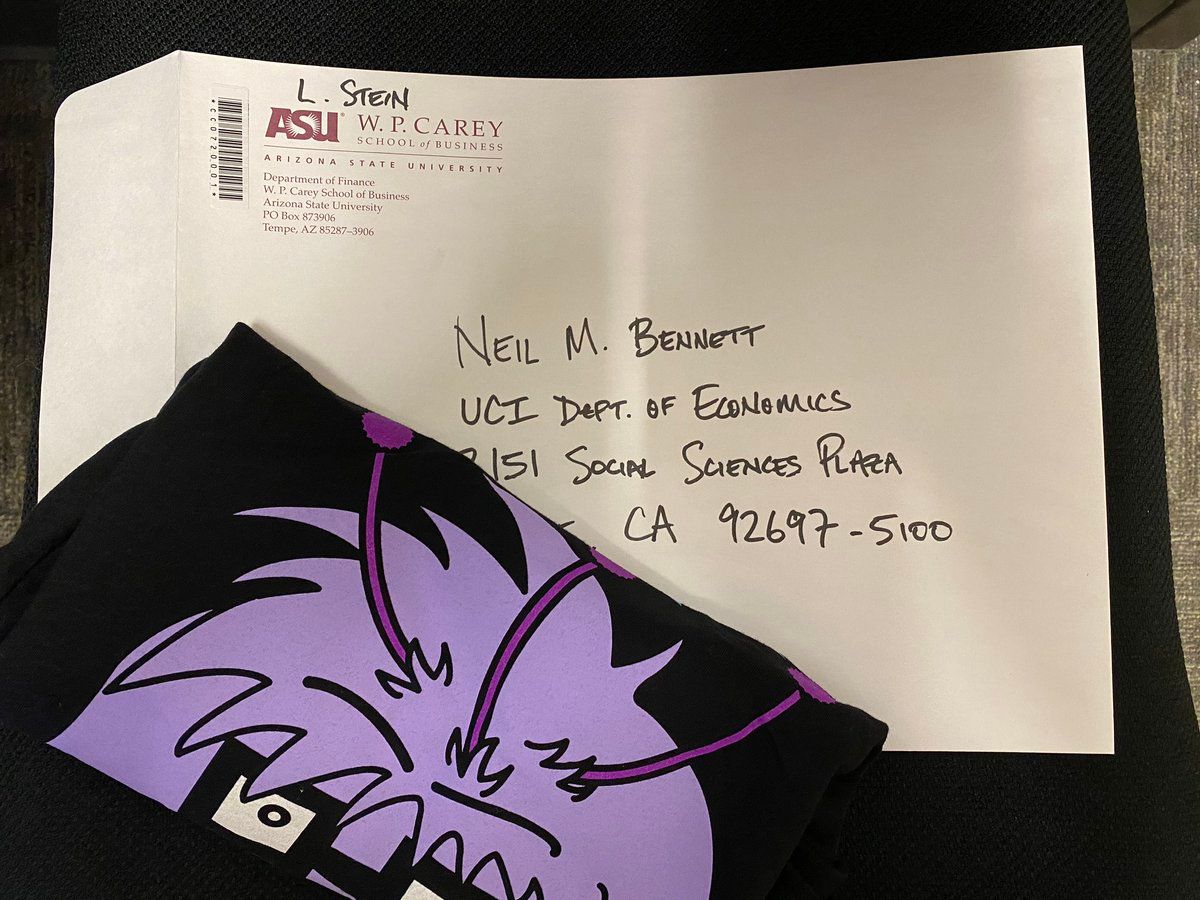 L. STEIN
ASU W. P. CAREY
SCHOOL of BUSINESS
ARIZONA STATE UNIVERSITY
*CC0720001*
Department of Finance
W. P. Carey School of Business
Arizona State University
PO Box 873906
Tempe, AZ 85287–3906
NEIL M. BENNETT
UCI DEPT. OF ECONOMICS
3151 SOCIAL SCIENCES PLAZA
CA 92697-5100